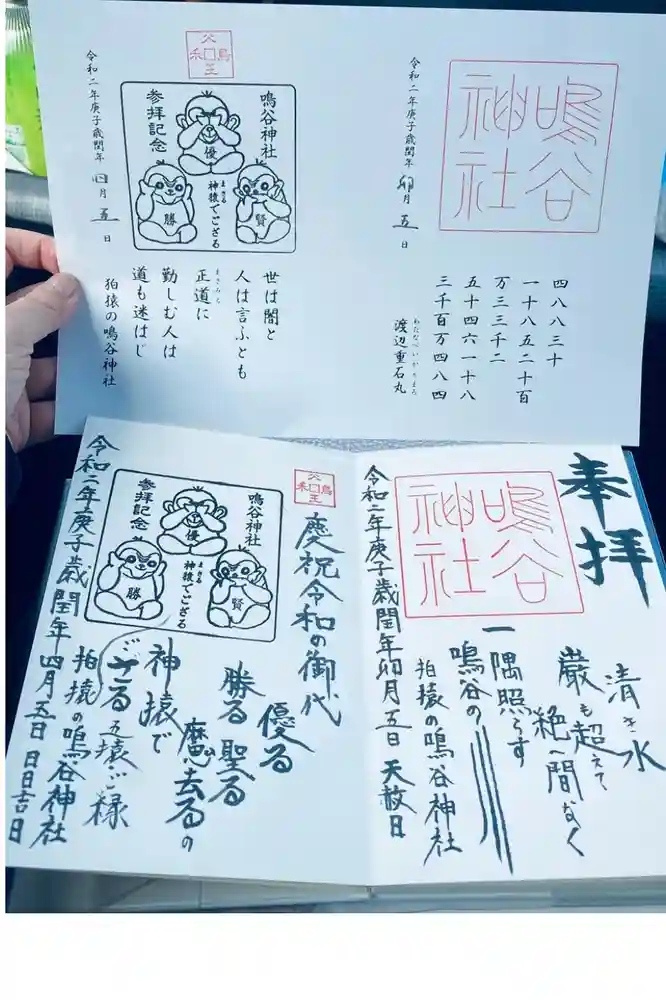 鳴谷
神社
令和二年庚子歳閏年
卯月
五日
四八八三十
一十八五二十百
万三三千二
五十四六一十八
三千百万四八四
わたなべいかりまろ
渡辺重石丸
鳴谷神社
優
賢
勝
まさる
神猿でござる
参拝記念
令和二年庚子歳閏年
四月
五日
世は闇と
人は言ふとも
まさみち
正道に
勤しむ人は
道も迷はじ
狛猿の鳴谷神社
奉拝
鳴谷
神社
清き水
巌も超えて
絶へ間なく
一隅照らす
鳴谷の
狛猿の鳴谷神社
令和二年庚子歳閏年卯月五日 天赦日
慶祝令和の御代
鳴谷神社
優
賢
勝
まさる
神猿でござる
参拝記念
優る
勝る 聖る
魔去るの
神猿で
ござる 五猿ご様
狛猿の鳴谷神社
令和二年庚子歳閏年 四月五日 日日吉日